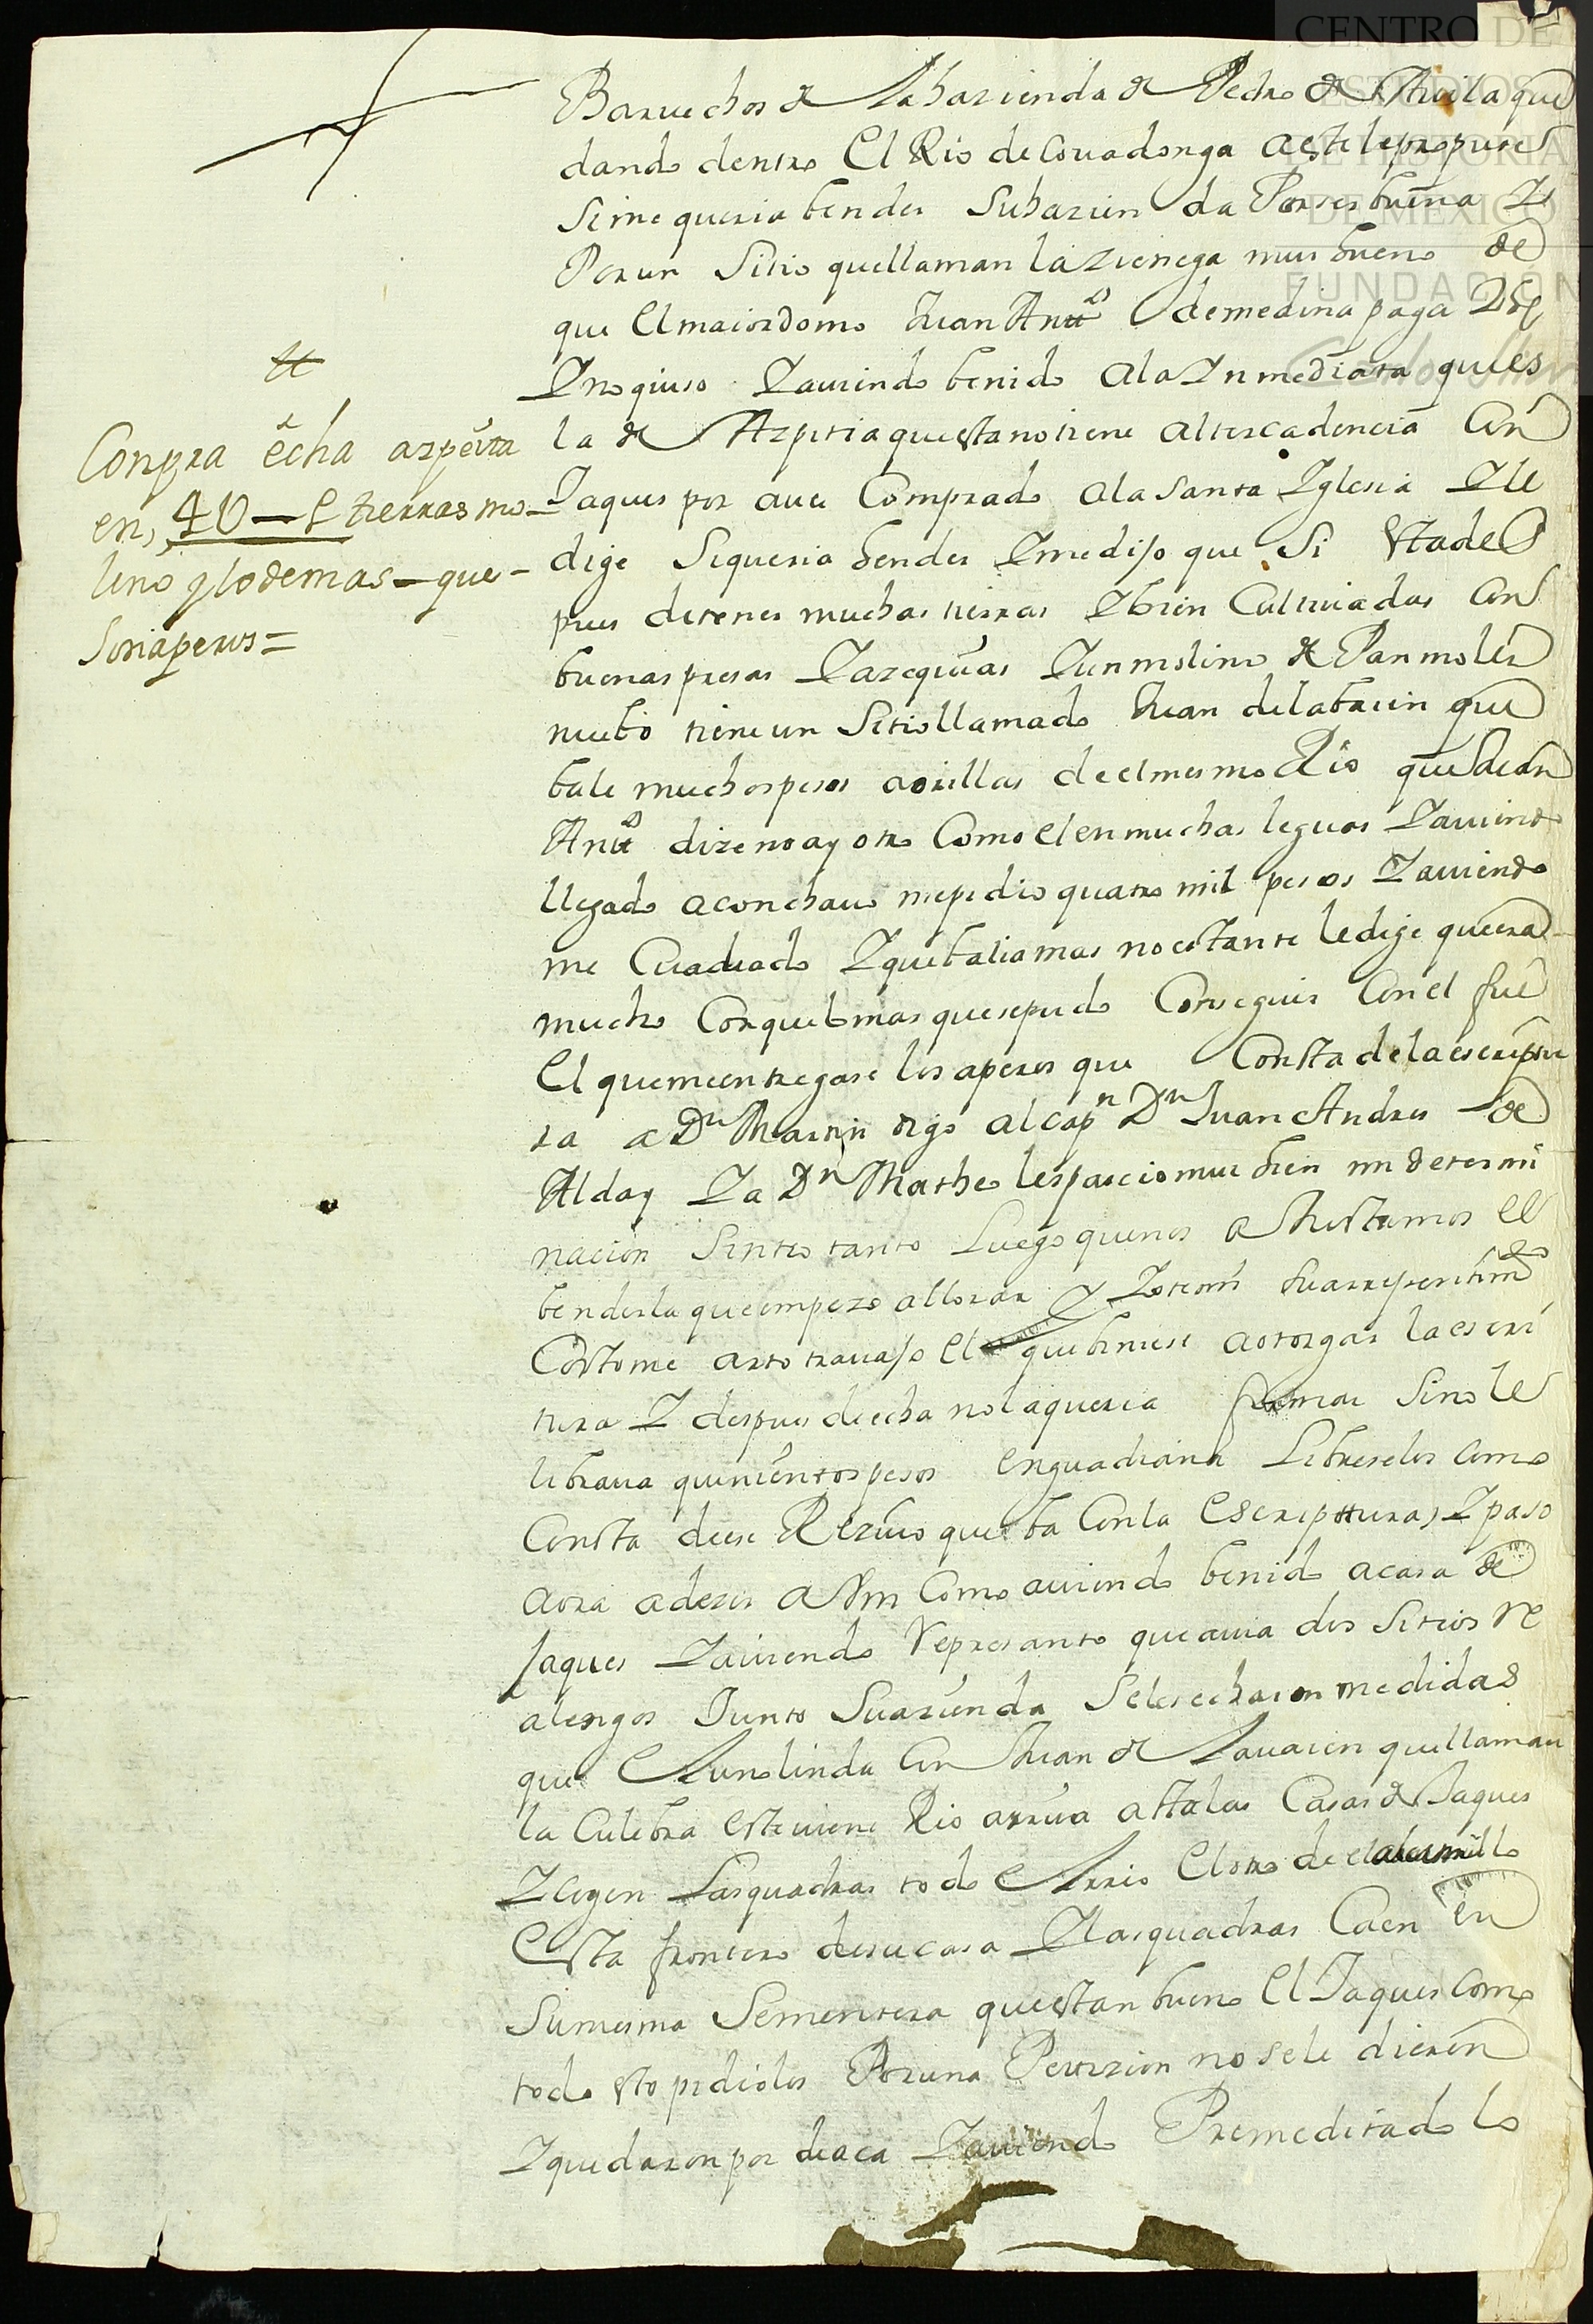 CENTRO DE
ESTUDIOS
DE HISTORIA
DE MÉXICO
FUNDACIÓN
Carlos Slim
Barvechos de la hazienda de Pedro de Avila que
dando dentro El Rio de Covadonga a este le propuse
si me queria bender su hazienda Por ser buena Y
Por un Sitio que llaman la Zienega mui bueno de
que El maiordomo Juan Antto de medina paga
Y no quiso Y auiendo benido a la Ynmediata que es
la de Azpitia que esta no tiene altercadencia con
Jaques por aver Comprado a la Santa Yglesia Y le
dige si queria bender Y me dijo que Si Esta des
pues de tener muchas tierras Y bien Cultiuadas con
buenas presas Y azequias Y un molino de Pan moler
nuebo tiene un Sitio llamado Juan de la bauin que
bale muchos pesos a orillas de el mesmo Rio que Juan
Antto dize no ay otro Como el en muchas leguas Y auiendo
llegado a conchauo me pidio quatro mil pesos Y auiendo
me Cuadrado Y que balia mas no ostante le dige que era
mucho Con que lo mas que se pudo Conseguir Con el fue
El que me entregase los aperos que Consta de la escriptu
ra a Dn Martin digo al capn Dn Juan Andres de
Alday Y a Dn Matheo les parecio mui bien mi determi
nacion Sintio tanto Luego que nos ajustamos el
benderla que empezo a llorar Y Yo temi Su arrepentimto
Costome arto trauajo El que biniese a otorgar la escri
tura Y despues de echa no la queria firmar Sino le
libraua quinientos pesos en guadiana Libreselos como
Consta de ese Rezivo que ba Con la Escripttura, Y paso
aora a dezir a Vm Como auiendo benido a casa de
Jaques Y auiendo Represento que auia dos Sitios re
alengos Junto Su azienda Se les echaron medidas
que El uno linda Con Juan de Lauauin que llaman
la Culebra este uiene Rio arriua asta las Casas de Jaques
Y cogen Las quadras todo El Rio El otro de el
Esta frontero de su casa Y las quadras Caen en
Su mesma Sementera que estan bueno El Jaques como
todo esto pidiolos Por una Petizion no se le dieron
Y quedaron por de aca Y auiendo Premeditado lo
Compra echa a azpitia
en, 4U—P tierras mo-
lino y lo demas—que-
Soriaperos=